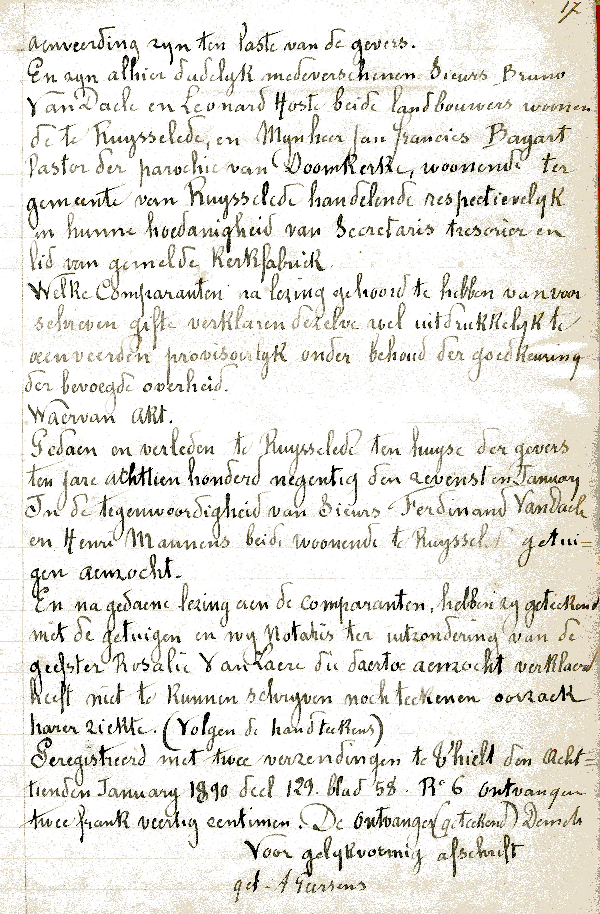 17
aenveerding zyn ten laste van de gevers.
En zyn alhier dadelyk medeverschenen Sieurs Bruno
VanDaele en Leonard Hoste beide landbouwers woonen
de te Ruysselede, en Mynheer Jan Francies Bagart
Pastor der parochie van Doomkerke, woonende ter
gemeente van Ruysselede handelende respectievelyk
in hunne hoedanigheid van Secretaris tresorier en
lid van gemelde Kerkfabriek.
Welke Comparanten na lezing gehoord te hebben van voor
schreven gifte verklaren dezelve wel uitdrukkelyk te
aenveerden provisoirlyk onder behoud der goedkeuring
der bevoegde overheid.
Waervan Akt.
Gedaen en verleden te Ruysselede ten huyse der gevers
ten jare achttien honderd negentig den zevensten January
In de tegenwoordigheid van Sieurs Ferdinand Vandaele
en Henri Mannens beide woonende te Ruyssel getui=
gen aenzocht.
En na gedaene lezing aen de comparanten, hebben zy geteekend
met de getuigen en wy Notaris ter uitzondering van de
geefster Rosalie VanLaere die daertoe aenzocht verklaerd
heeft niet te kunnen schryven noch teekenen oorzaek
harer ziekte. (Volgen de handteekens)
Geregistreerd met twee verzendingen te Thielt den Acht=
tienden January 1890 deel 129. blad 58. R° 6 ontvangen
twee frank veertig centimen. De ontvanger (geteekend)
Voor gelykvormig afschrift
get.